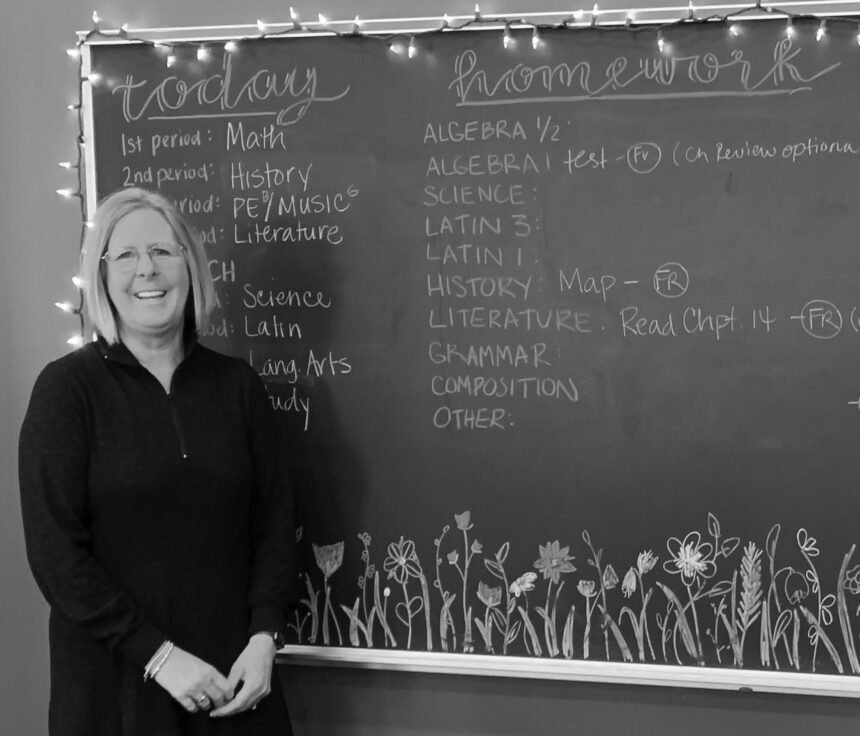 today
1st period: Math
2nd period: History
riod: PE B/MUSIC G
od: Literature
CH
: Science
od: Latin
Lang. Arts
udy
homework
ALGEBRA 1/2:
ALGEBRA 1 test - Fr (Ch Review optiona
SCIENCE:
LATIN 3:
LATIN 1:
HISTORY: Map - FR
LITERATURE. Read Chpt. 14 - FR (
GRAMMAR:
COMPOSITION:
OTHER: